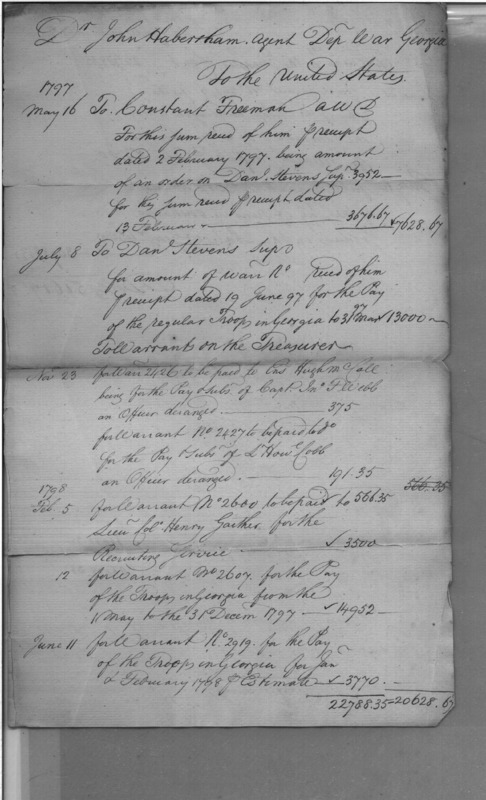 Dr John Habersham. Agent Dep War Georgia
To the United States.
1797
May 16 To Constant Freeman
For this sum recd of him p receipt
dated 2 February 1797. being amount
of an order on Danl Stevens Supr 3952 —
for his sum recd p receipt dated
13 February — 3676.67 7628.67
July 8 To Danl Stevens Supr
for amount of warr No recd of him
p receipt dated 19 June 97 for the Pay
of the regular Troops in Georgia to 31 Mar 97 13000 —
To Warrants on the Treasurer
Nov 23 for Warr 2426 to be paid to Ens Hugh McCall
being for the Pay & Subs. of Capt. Jno F Webb
an Officer deranged. — 375
for Warrant No 2427 to be paid to do
for the Pay & Subs of Lt Howl Cobb
an Officer deranged. — 191.35 566.35
1798
Feb. 5 for Warrant No 2600 to be paid to 566.35
Lieut Col Henry Gaither for the
Recruiting Service. 3500
12 for Warrant No 2607. for the Pay
of the Troops in Georgia from the
1 May to the 31 Decem 1797 — 14952 —
June 11 for Warrant No 2919. for the Pay
of the Troops in Georgia for Jan
& February 1798 p Estimate 3770. —
22788.35 = 20628.67